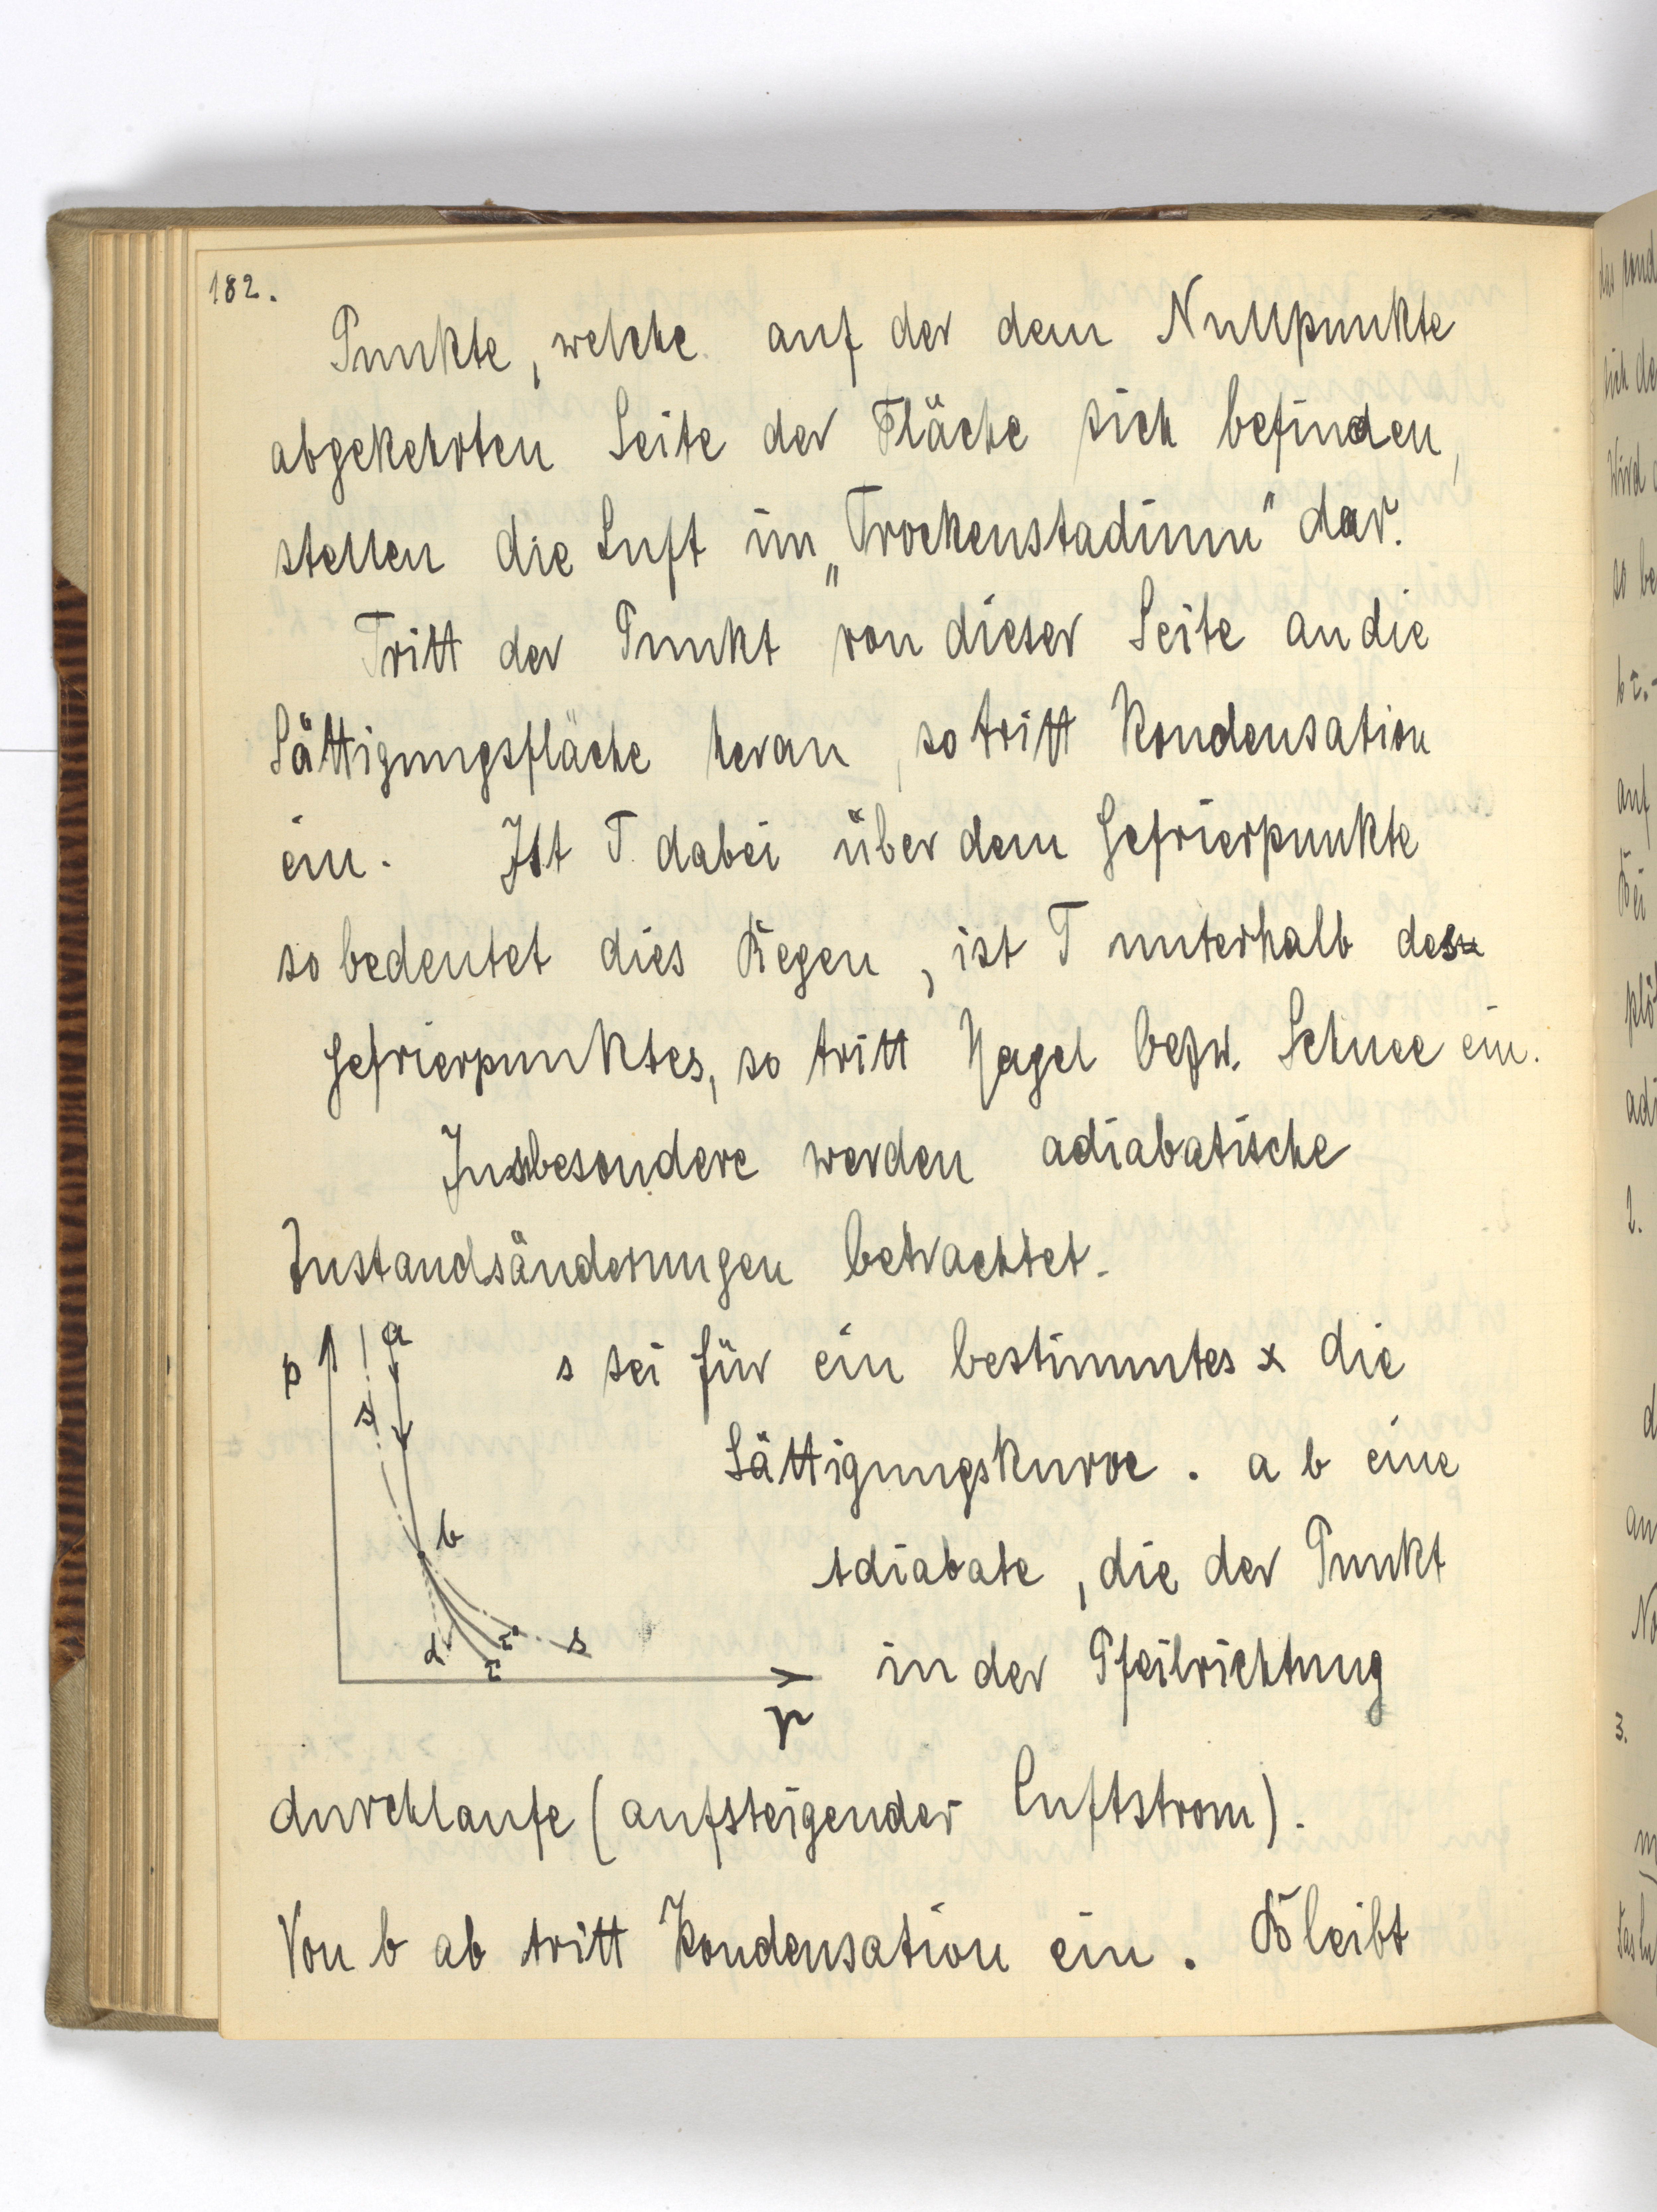 182.
Punkte, welche auf der dem Nullpunkte
abgekehrten Seite der Fläche sich befinden,
stellen die Luft im „Trockenstadium" dar.
Tritt der Punkt von dieser Seite an die
Sättigungsfläche heran, so tritt Kondensation
ein. Ist T dabei über dem Gefrierpunkte
so bedeutet dies Regen, ist T unterhalb des
Gefrierpunktes, so tritt Hagel bezw. Schnee ein.
Insbesondere werden adiabatische
Zustandsänderungen betrachtet.
p
a
s
s sei für ein bestimmtes x die
Sättigungskurve. a b eine
Adiabate, die der Punkt
b
in der Pfeilrichtung
d τ τ' s
v
durchlaufe (aufsteigender Luftstrom).
Von b ab tritt Kondensation ein. Bleibt
2.
3.